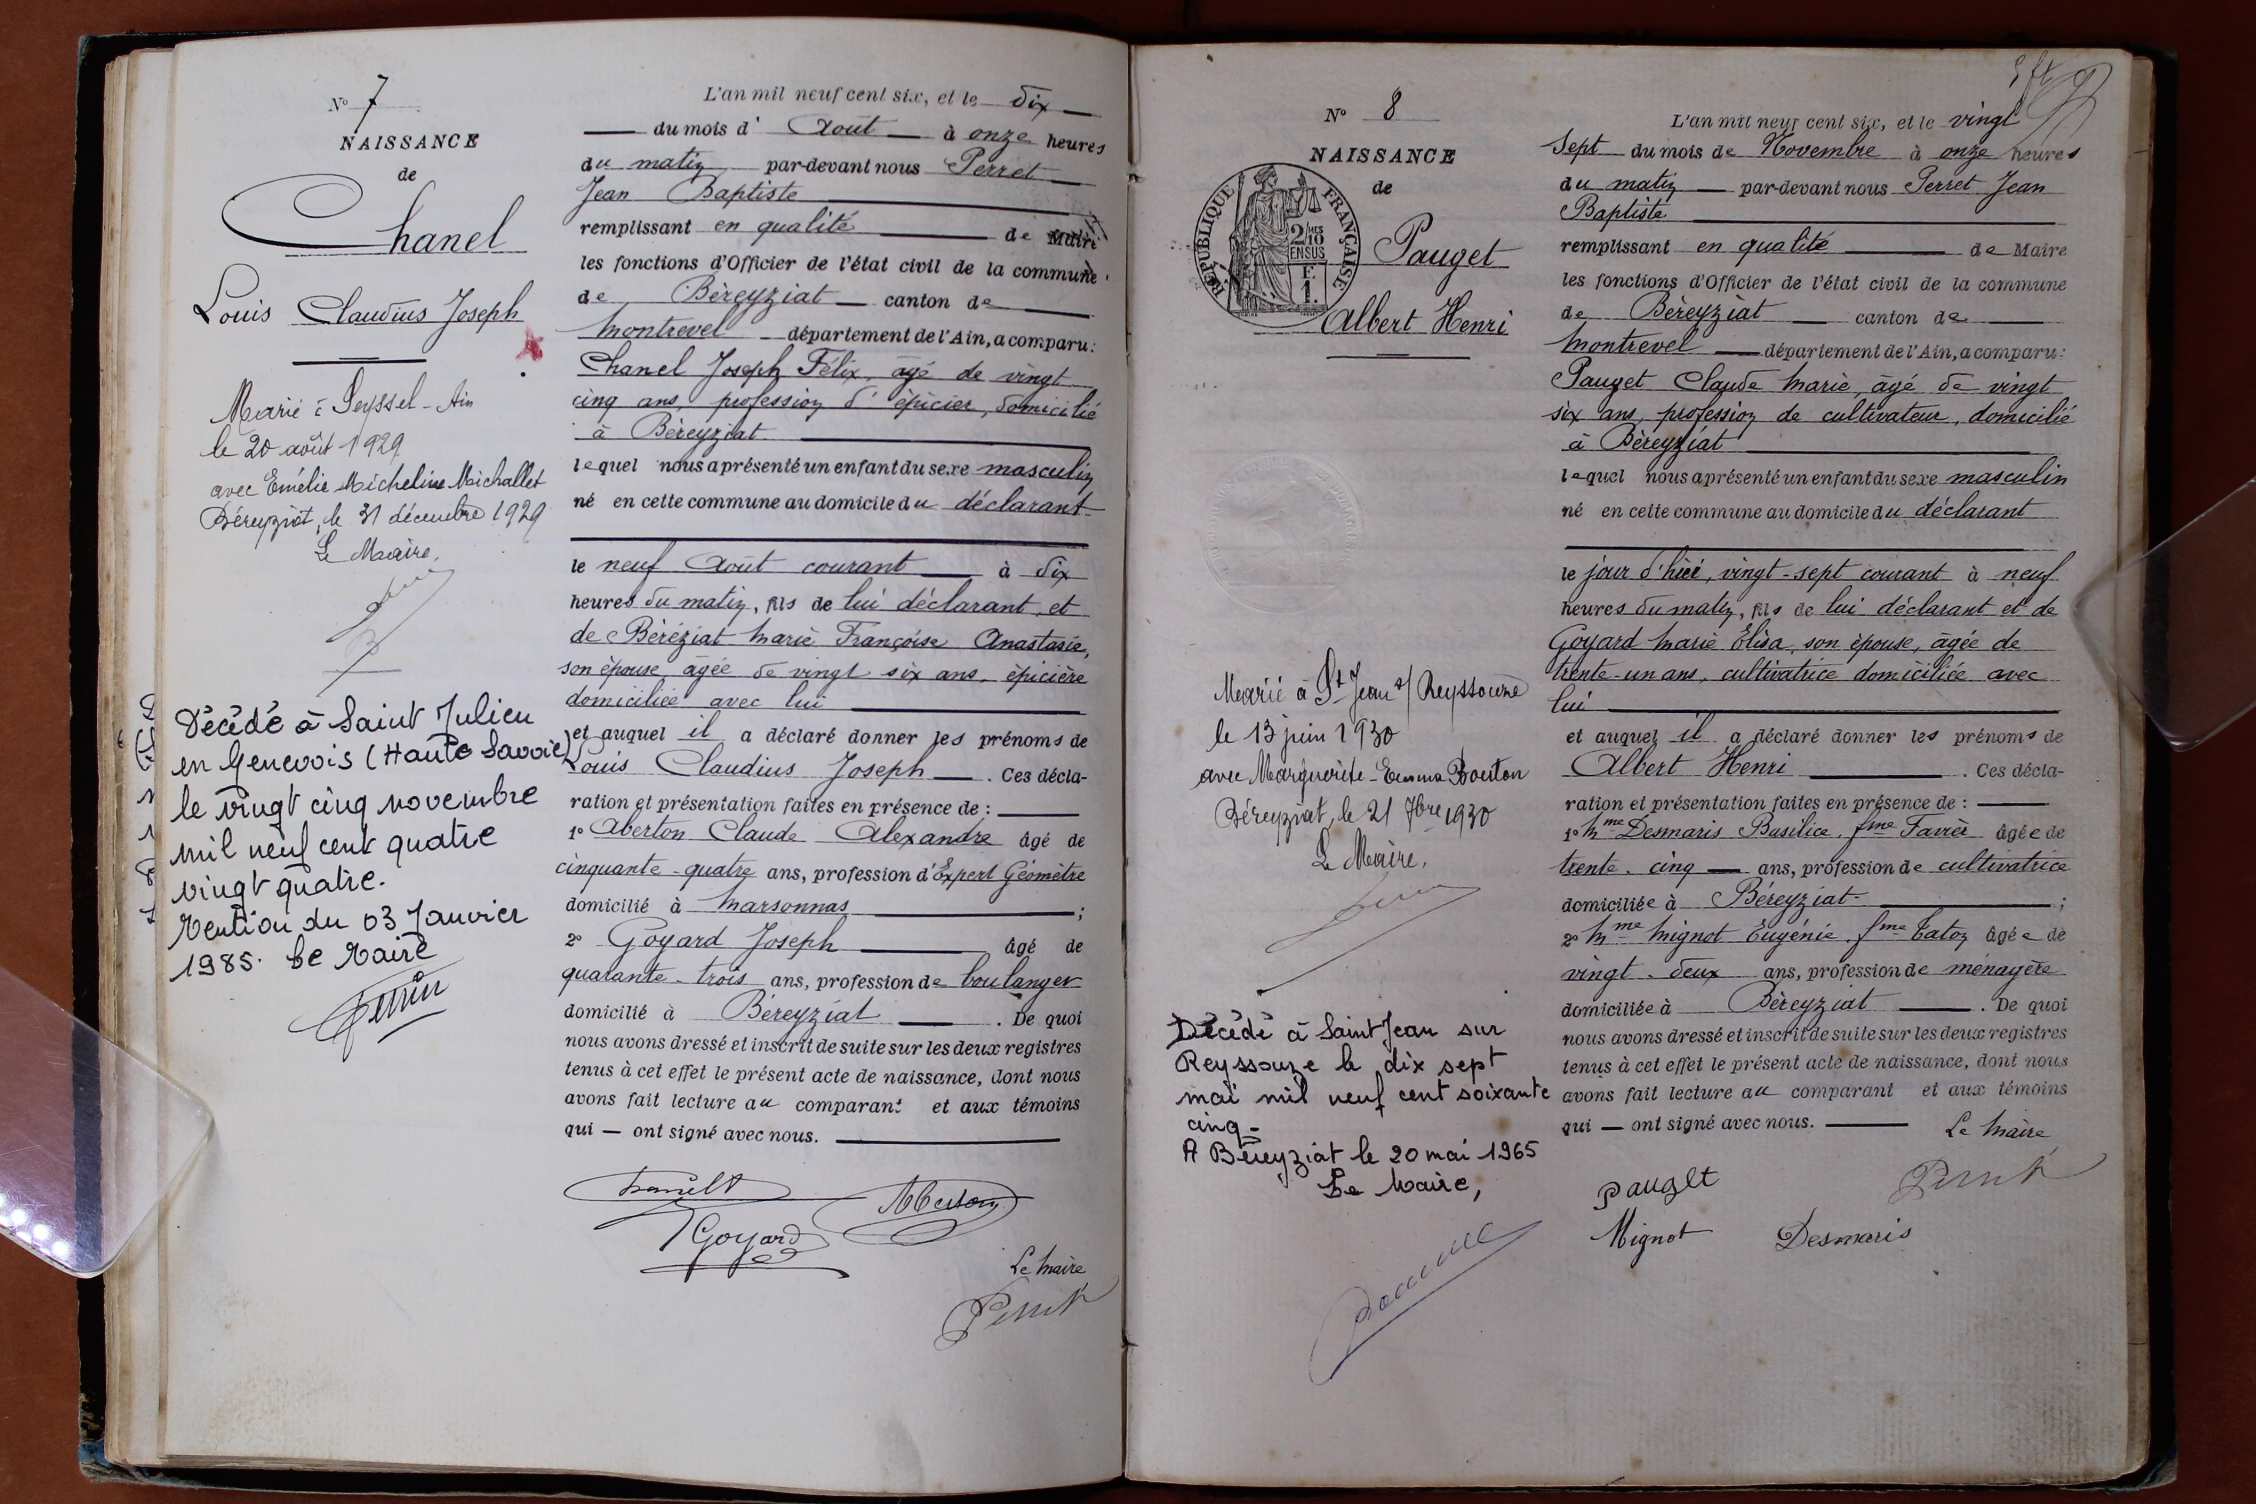 N° 7
NAISSANCE
de
Chanel
Louis Claudius Joseph
Marié à Seyssel - Ain
le 20 août 1929
avec Emélie Micheline Michallet
Béreyziat, le 31 décembre 1929
Le Maire,
Décédé à Saint Julien
en Genevois (Haute Savoie)
le vingt cinq novembre
mil neuf cent quatre
vingt quatre.
Mention du 03 Janvier
1985. Le Maire
L'an mil neuf cent six, et le dix
du mois d' Août à onze heures
du matin par-devant nous Perret
Jean Baptiste
remplissant en qualité de Maire
les fonctions d'Officier de l'état civil de la commune
de Béreyziat canton de
Montrevel département de l'Ain, a comparu:
Chanel Joseph Félix, âgé de vingt
cinq ans, profession d'épicier, domicilié
à Béreyziat
lequel nous a présenté un enfant du sexe masculin
né en cette commune au domicile du déclarant
le neuf Août courant à dix
heures du matin, fils de lui déclarant et
de Béréziat Marie Françoise Anastasie,
son épouse âgée de vingt six ans, épicière
domiciliée avec lui
et auquel il a déclaré donner les prénoms de
Louis Claudius Joseph. Ces décla-
ration et présentation faites en présence de :
1° Aberton Claude Alexandre âgé de
cinquante-quatre ans, profession d'Expert Géomètre
domicilié à Marsonnas ;
2° Goyard Joseph âgé de
quarante-trois ans, profession de boulanger
domicilié à Béreyziat . De quoi
nous avons dressé et inscrit de suite sur les deux registres
tenus à cet effet le présent acte de naissance, dont nous
avons fait lecture au comparant et aux témoins
qui — ont signé avec nous.
Goyard
Le Maire
Perret
N° 8
NAISSANCE
de
RÉPUBLIQUE FRANÇAISE
2/10 EN SUS
F
1.
Pauget
Albert Henri
Marié à St Jean s/ Reyssouze
le 13 juin 1930
avec Marguerite-Emma Bouton
Béreyziat, le 21 7bre 1930
Le Maire,
Décédé à Saint Jean sur
Reyssouze le dix sept
mai mil neuf cent soixante
cinq -
A Béreyziat le 20 mai 1965
Le Maire,
L'an mil neuf cent six, et le vingt
Sept du mois de Novembre à onze heures
du matin par-devant nous Perret Jean
Baptiste
remplissant en qualité de Maire
les fonctions d'Officier de l'état civil de la commune
de Béreyziat canton de
Montrevel département de l'Ain, a comparu:
Pauget Claude Marie, âgé de vingt
six ans, profession de cultivateur, domicilié
à Béreyziat
lequel nous a présenté un enfant du sexe masculin
né en cette commune au domicile du déclarant
le jour d'hier, vingt-sept courant à neuf
heures du matin, fils de lui déclarant et de
Goyard Marie Elisa, son épouse, âgée de
trente-un ans, cultivatrice domiciliée avec
lui
et auquel il a déclaré donner les prénoms de
Albert Henri . Ces décla-
ration et présentation faites en présence de :
1° Mme Desmaris Basilice, fme Favier âgée de
trente-cinq ans, profession de cultivatrice
domiciliée à Béreyziat ;
2° Mme Mignot Eugénie, fme Caton âgée de
vingt-deux ans, profession de ménagère
domiciliée à Béreyziat . De quoi
nous avons dressé et inscrit de suite sur les deux registres
tenus à cet effet le présent acte de naissance, dont nous
avons fait lecture au comparant et aux témoins
qui — ont signé avec nous.
Le Maire
Pauget
Perret
Mignot
Desmaris